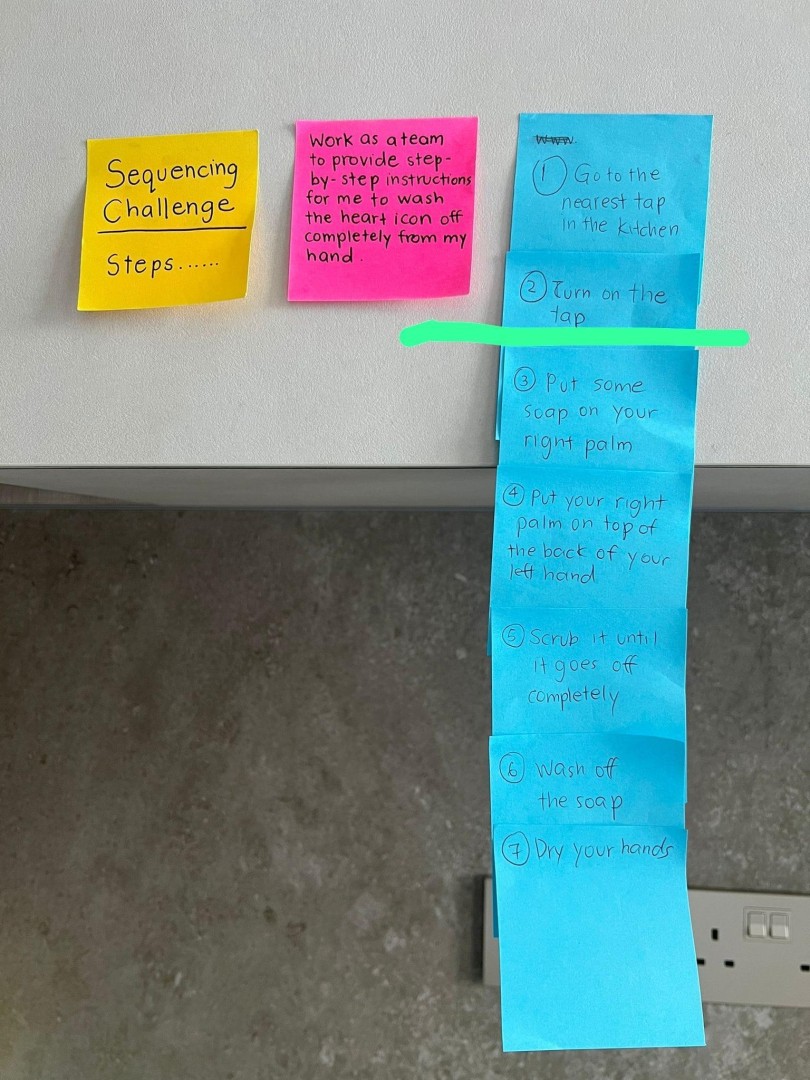 Sequencing
Challenge
Steps......
Work as a team
to provide step-
by-step instructions
for me to wash
the heart icon off
completely from my
hand.
① Go to the
nearest tap
in the kitchen
② Turn on the
tap
③ Put some
soap on your
right palm
④ Put your right
palm on top of
the back of your
left hand
⑤ Scrub it until
it goes off
completely
⑥ Wash off
the soap
⑦ Dry your hands